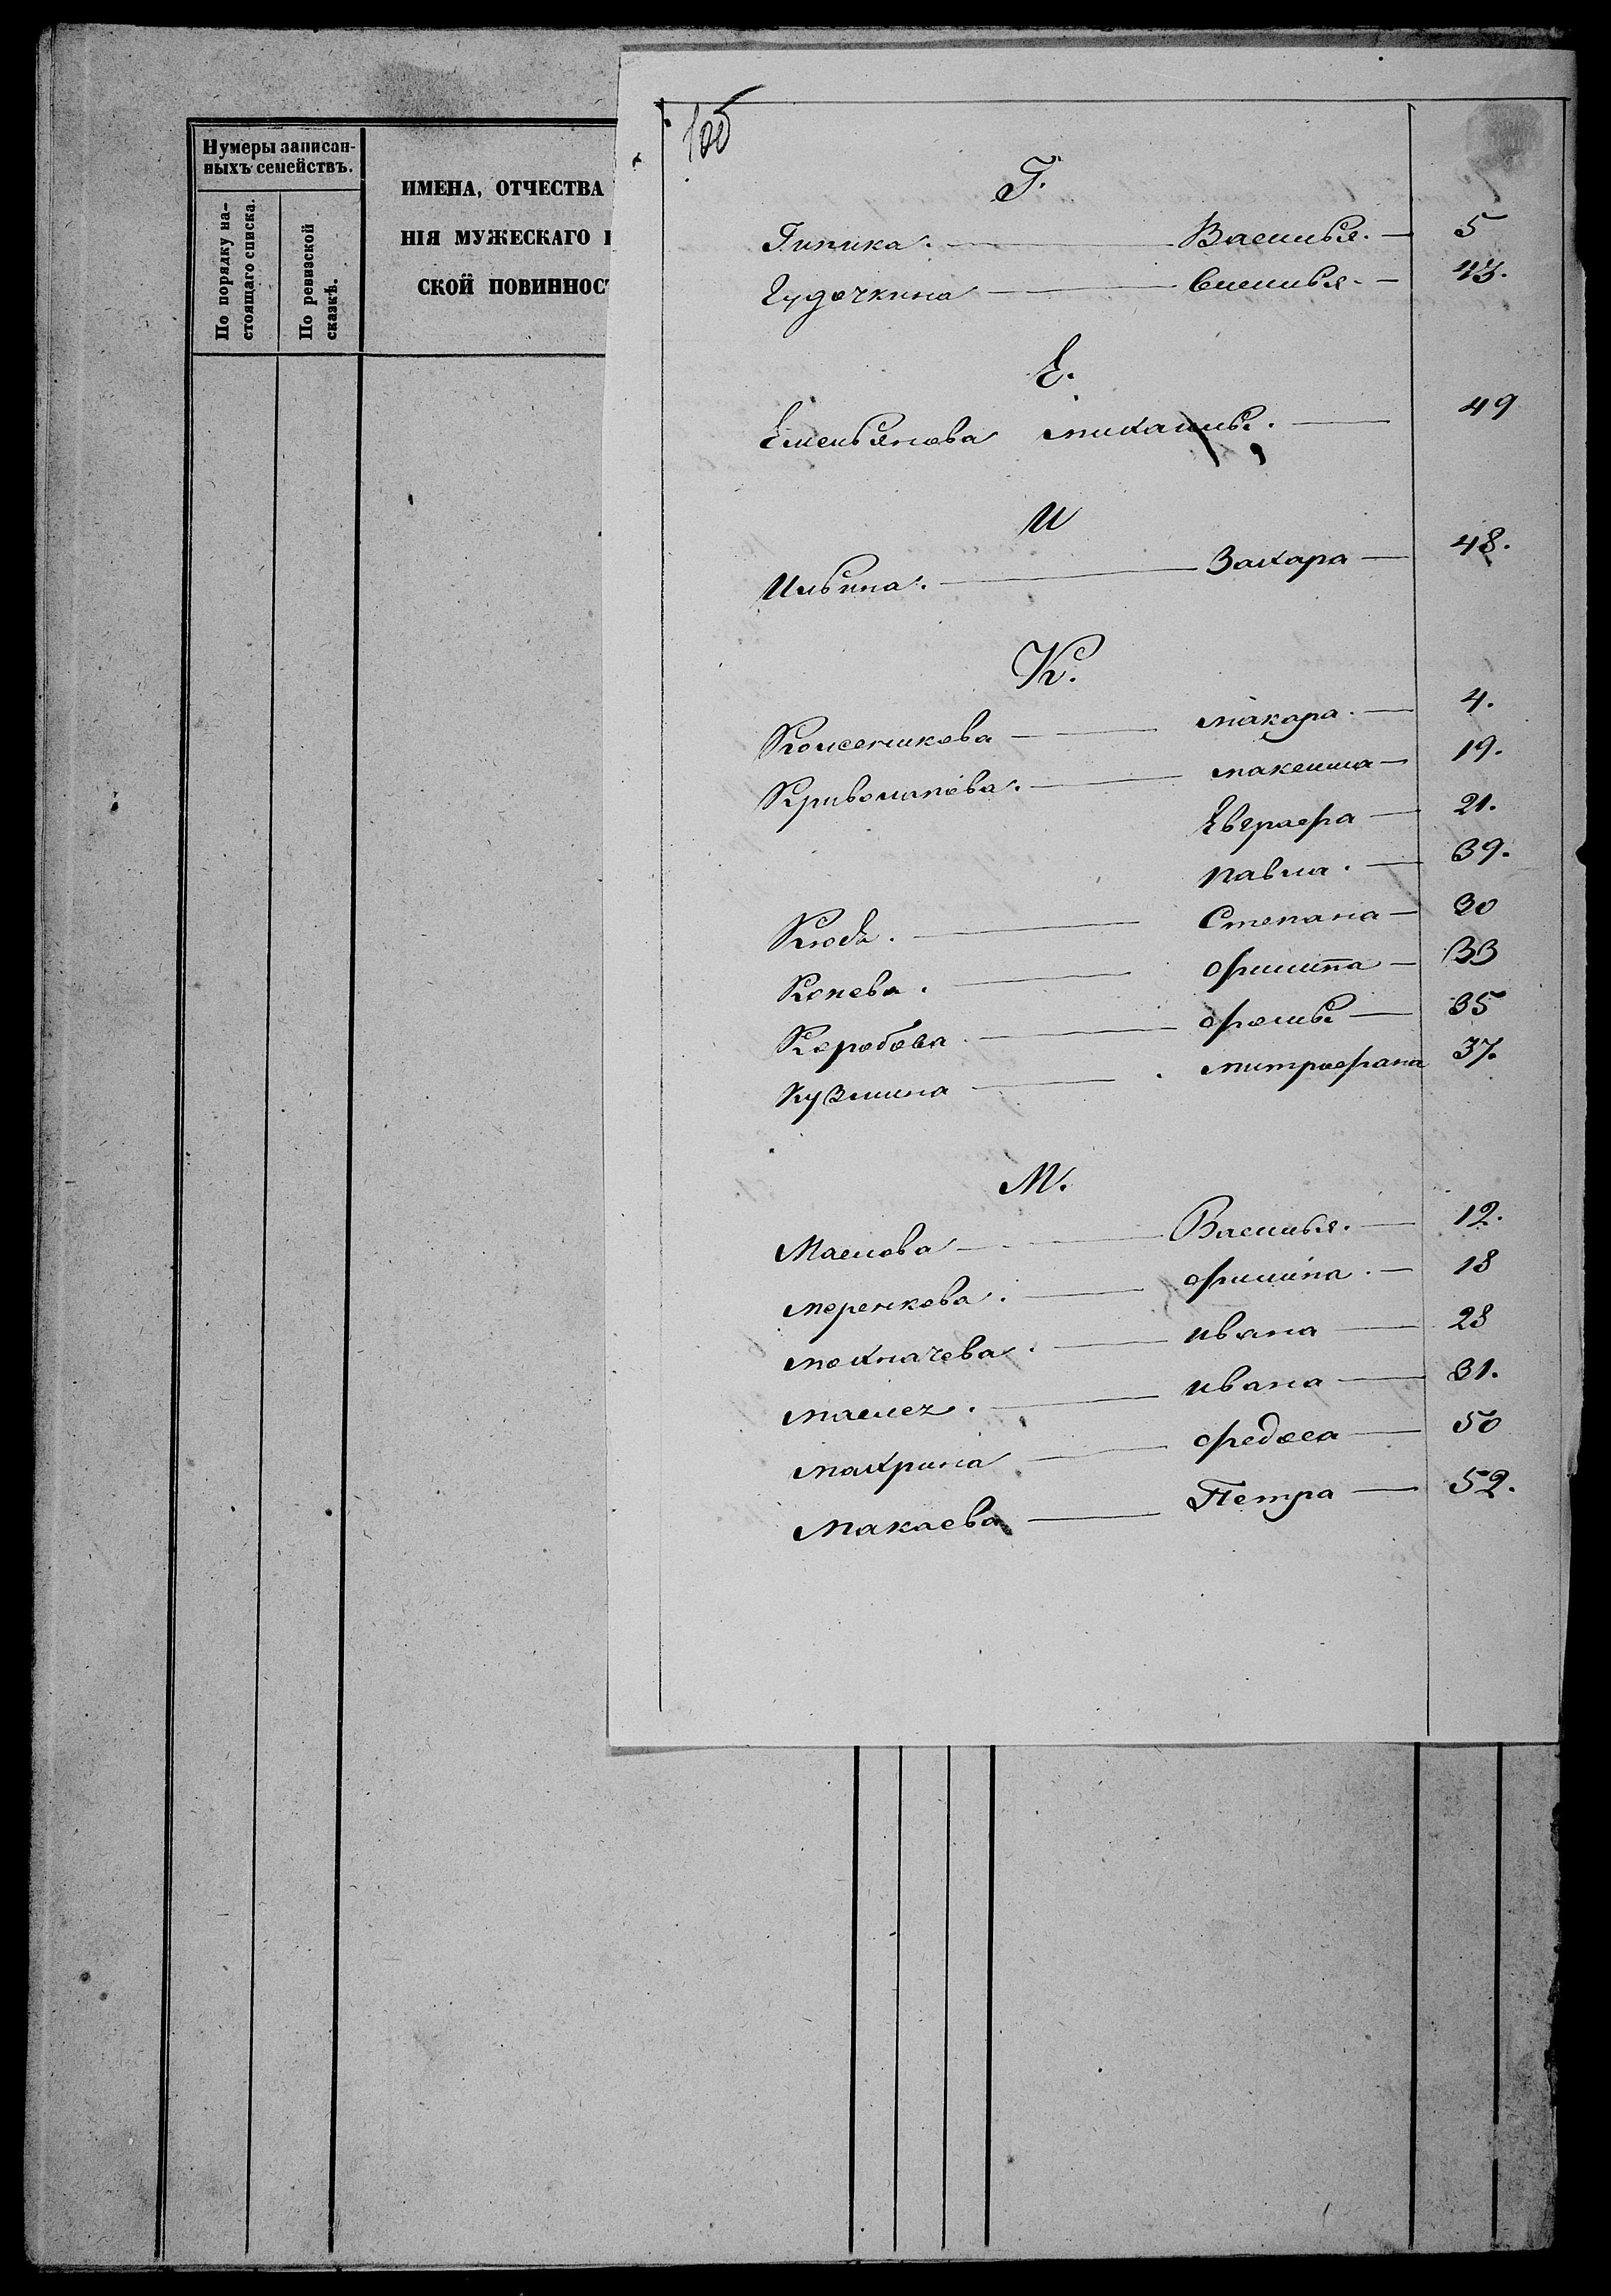 Нумеры записан-
ныхъ семействъ.
По порядку на-
стоящаго списка.
По ревизской
сказкѣ.
ИМЕНА, ОТЧЕСТВА
НІЯ МУЖЕСКАГО
СКОЙ ПОВИННОСТ
Г.
Гипика. Василья. 5
Гудочкина Савелья. 43.
Е.
Емельянова Михайлы. 49
И
Ильина. Захара 48.
К.
Колесникова Макара. 4.
Кривошапова. Максима 19.
Евграфа 21.
Павла. 39.
Степана 30
Конева. Филиппа 33
Коробова Фомы 35
Кузмина Митрофана 37.
М.
Маслова Василья. 12.
Меренкова. Филипа. 18
Мохначева. Ивана 28
Ивана 31.
Махрина Федоса 50
Макаева Петра 52.